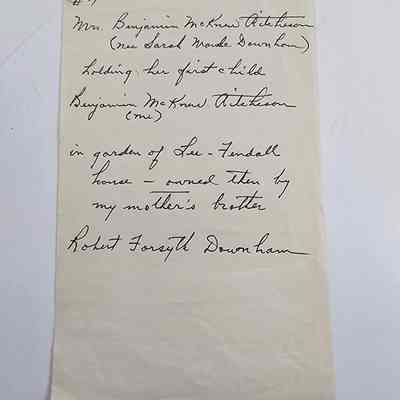 Mrs. Benjamin McKnew Aitcheson
(nee Sarah Downham)
holding her first child
Benjamin McKnew Aitcheson
(me)
in garden of Lee-Fendall
house – owned then by
my mother's brother
Robert Forsyth Downham